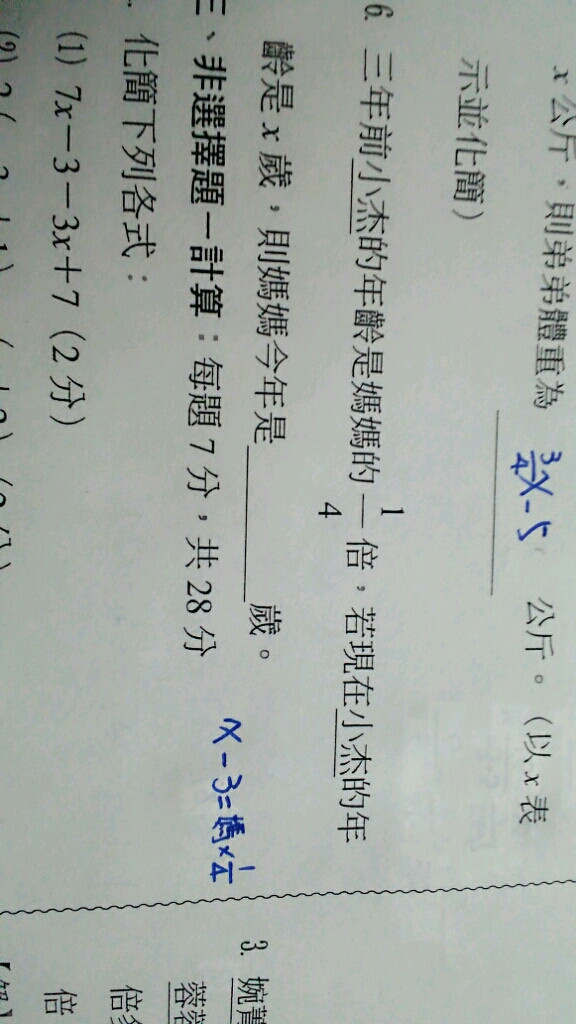 x 公斤，則弟弟體重為 3/4x-5 公斤。(以 x 表
示並化簡)
6. 三年前小杰的年齡是媽媽的 1/4 倍，若現在小杰的年
齡是 x 歲，則媽媽今年是＿＿＿歲。
x-3=媽×1/4
三、非選擇題－計算：每題 7 分，共 28 分
化簡下列各式：
(1) 7x－3－3x＋7 (2 分)
3. 婉菁
倍